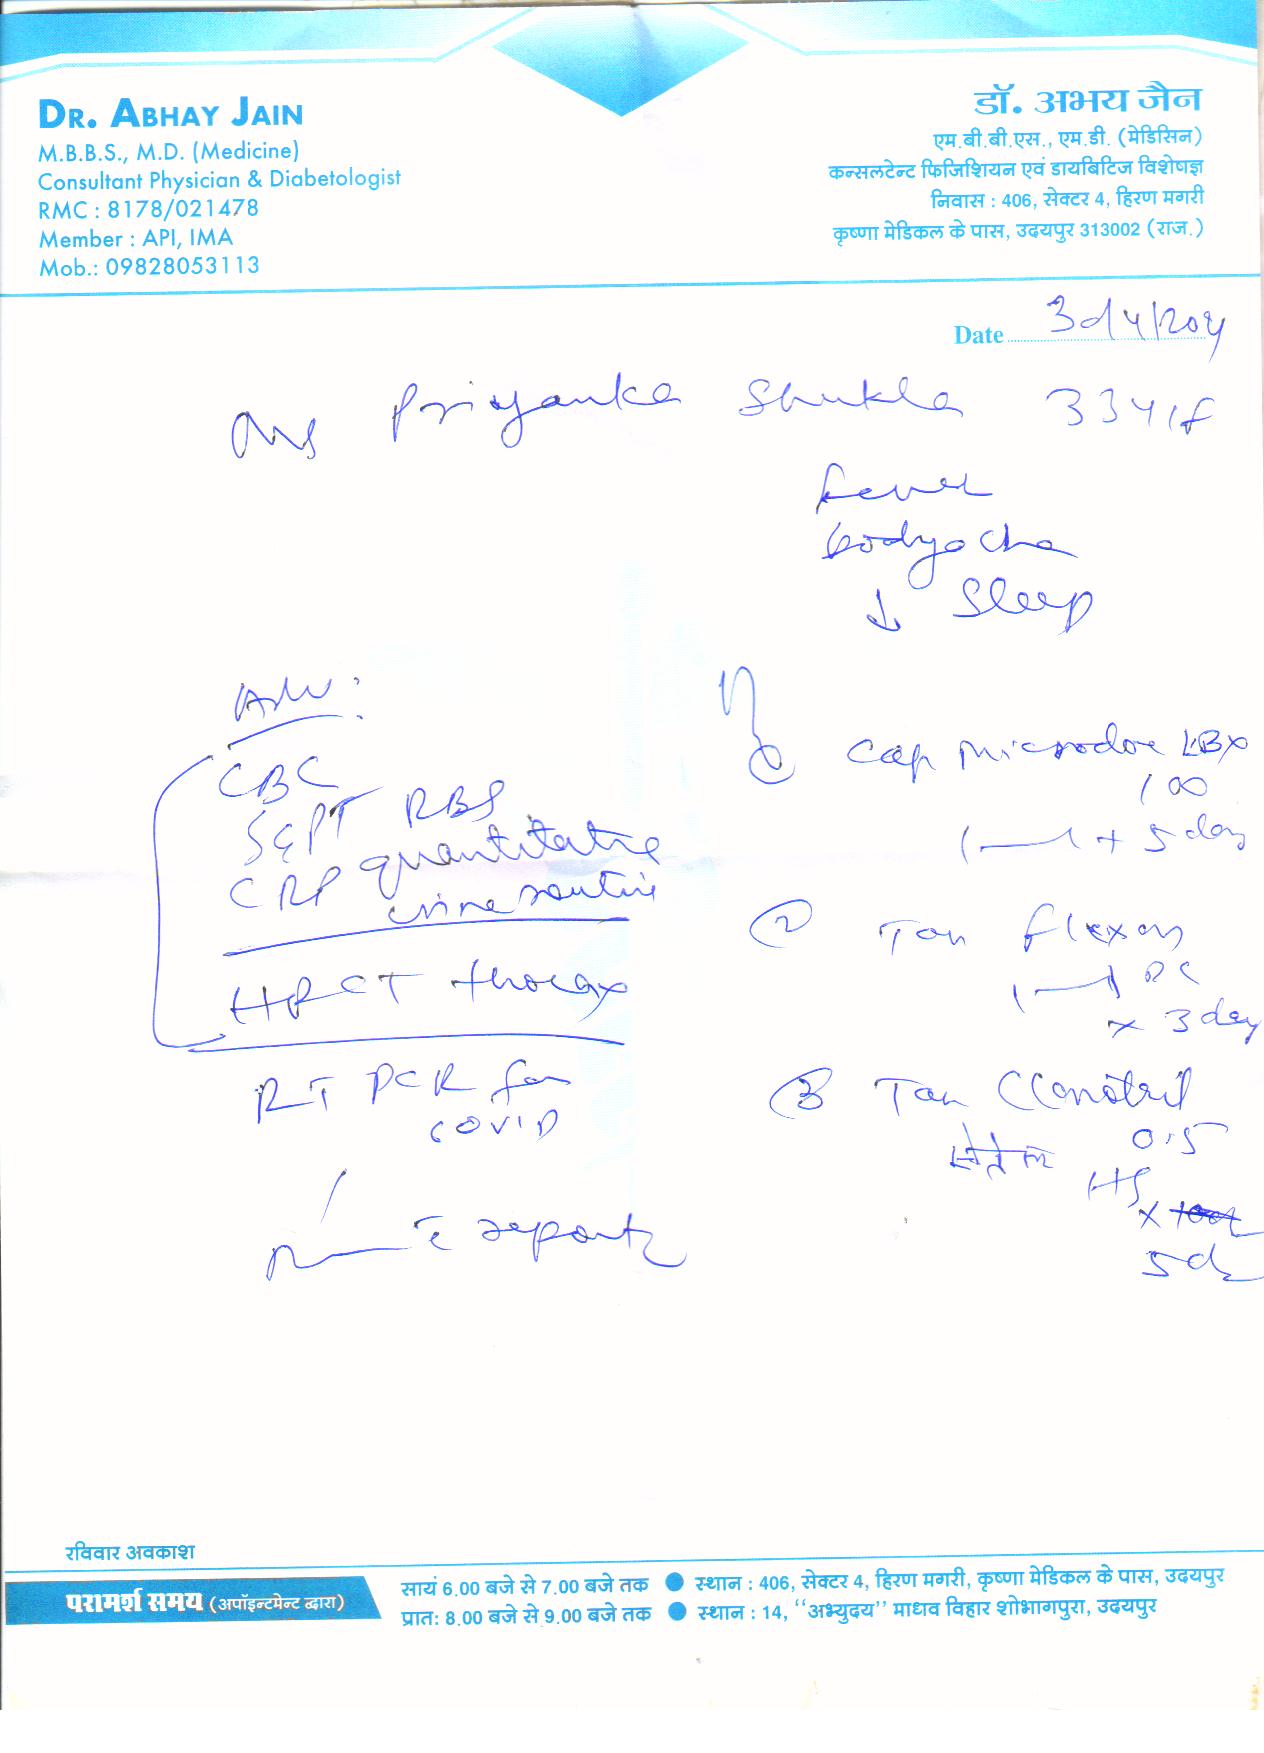 DR. ABHAY JAIN
M.B.B.S., M.D. (Medicine)
Consultant Physician & Diabetologist
RMC : 8178/021478
Member : API, IMA
Mob.: 09828053113
डॉ. अभय जैन
एम.बी.बी.एस., एम.डी. (मेडिसिन)
कन्सलटेन्ट फिजिशियन एवं डायबिटिज विशेषज्ञ
निवास : 406, सेक्टर 4, हिरण मगरी
कृष्णा मेडिकल के पास, उदयपुर 313002 (राज.)
Date
Priyanka Shukla
fever
bodyache
↓ Sleep
Adv :
CBC
SGPT RBS
CRP quantitative
urine routine
HRCT thorax
RT PCR for
COVID
reports
Cap Microdox LBX
100
1—1 + 5 day
2 Tab Flexon
1—1
x 3 day
3 Tab Clonotril
0.5
HS
x
5d
रविवार अवकाश
परामर्श समय (अपॉइन्टमेन्ट द्वारा)
सायं 6.00 बजे से 7.00 बजे तक ● स्थान : 406, सेक्टर 4, हिरण मगरी, कृष्णा मेडिकल के पास, उदयपुर
प्रात: 8.00 बजे से 9.00 बजे तक ● स्थान : 14, "अभ्युदय" माधव विहार शोभागपुरा, उदयपुर